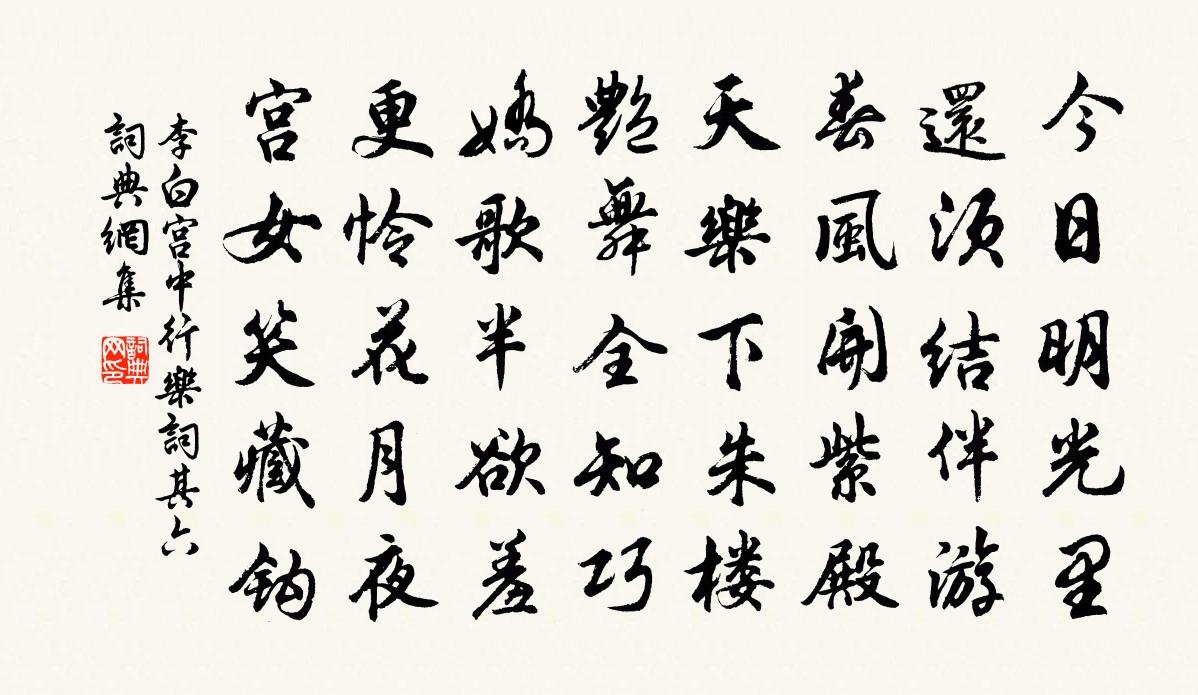 今日明光里
還須結伴游
春風開紫殿
天樂下朱楼
艷舞全知巧
嬌歌半欲羞
更怜花月夜
宮女笑藏鈎
李白宮中行樂詞其六
詞典網集
詞典网印